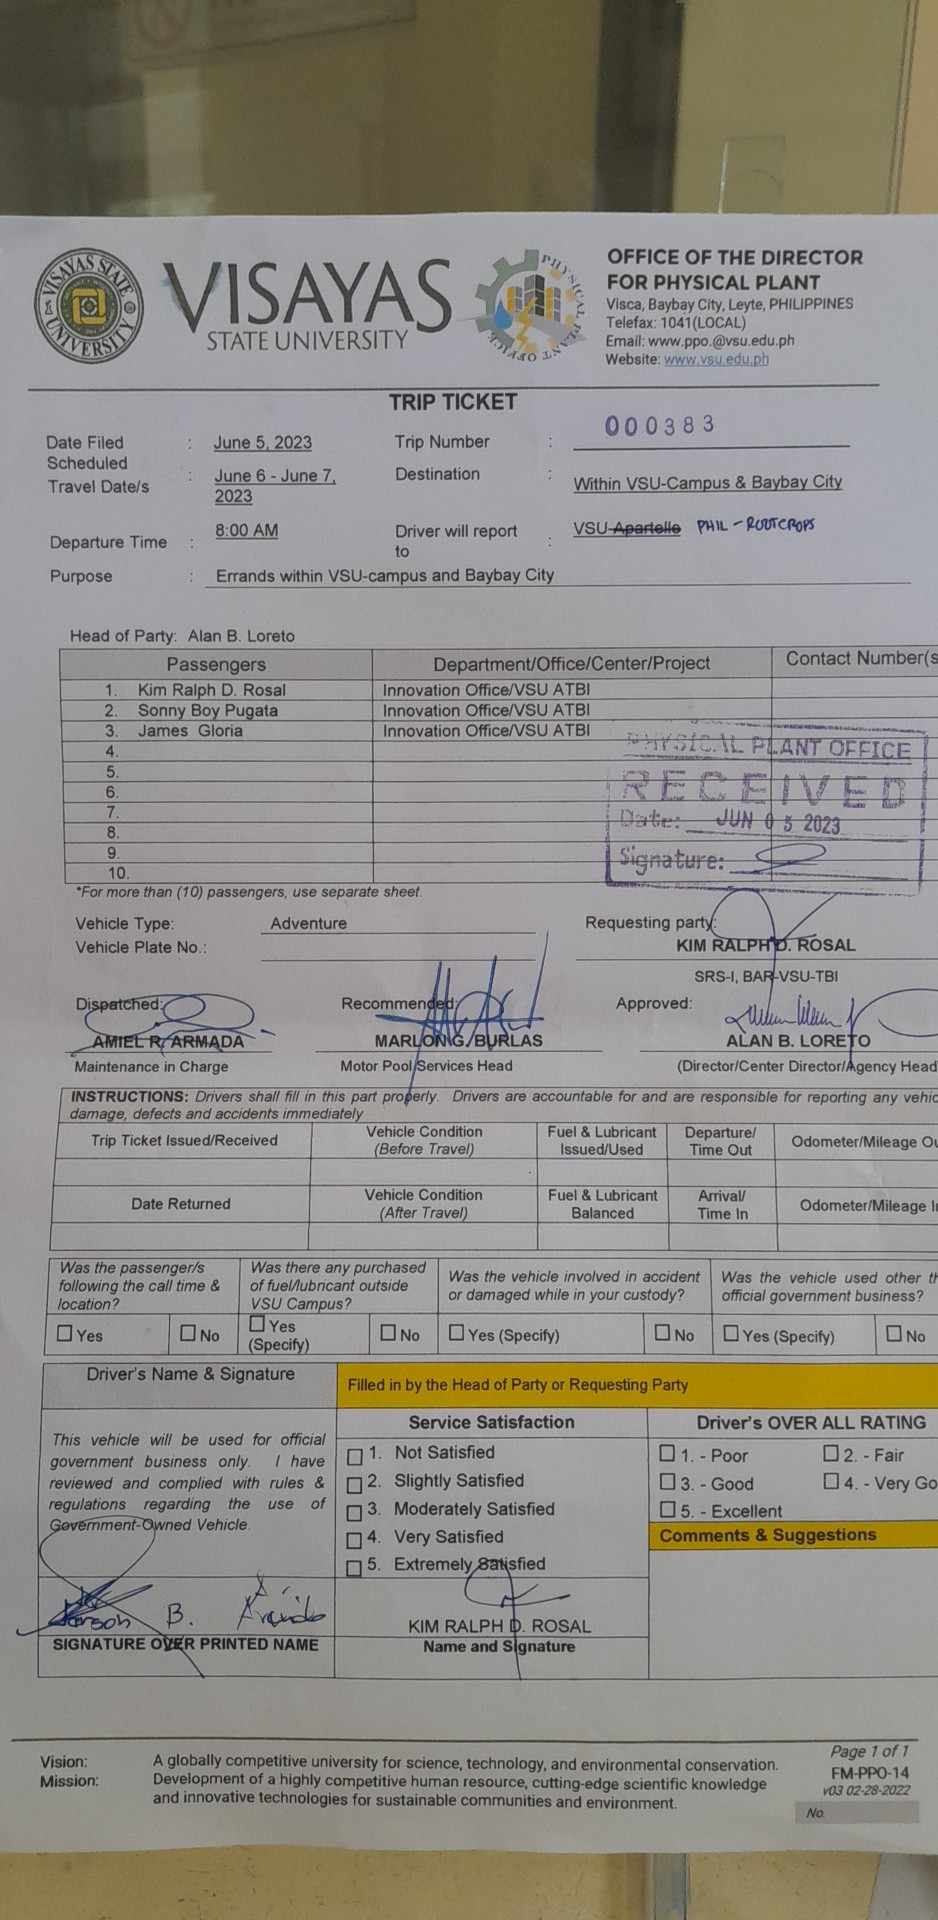 VISAYAS STATE UNIVERSITY
VISAYAS
STATE UNIVERSITY
PHYSICAL PLANT OFFICE
OFFICE OF THE DIRECTOR
FOR PHYSICAL PLANT
Visca, Baybay City, Leyte, PHILIPPINES
Telefax: 1041(LOCAL)
Email: www.ppo.@vsu.edu.ph
Website: www.vsu.edu.ph
TRIP TICKET
Date Filed : June 5, 2023 Trip Number : 000383
Scheduled
Travel Date/s : June 6 - June 7, 2023 Destination : Within VSU-Campus & Baybay City
Departure Time : 8:00 AM Driver will report to : VSU-Apartelle PHIL - ROOTCROPS
Purpose : Errands within VSU-campus and Baybay City
Head of Party: Alan B. Loreto
Passengers Department/Office/Center/Project Contact Number(s
1. Kim Ralph D. Rosal Innovation Office/VSU ATBI
2. Sonny Boy Pugata Innovation Office/VSU ATBI
3. James Gloria Innovation Office/VSU ATBI
4.
5.
6.
7.
8.
9.
10.
PHYSICAL PLANT OFFICE
RECEIVED
Date: JUN 05 2023
Signature:
*For more than (10) passengers, use separate sheet.
Vehicle Type: Adventure Requesting party:
Vehicle Plate No.: KIM RALPH D. ROSAL
SRS-I, BAR-VSU-TBI
Dispatched: Recommended: Approved:
AMIEL R. ARMADA MARLON G. BURLAS ALAN B. LORETO
Maintenance in Charge Motor Pool Services Head (Director/Center Director/Agency Head
INSTRUCTIONS: Drivers shall fill in this part properly. Drivers are accountable for and are responsible for reporting any vehic
damage, defects and accidents immediately
Trip Ticket Issued/Received Vehicle Condition (Before Travel) Fuel & Lubricant Issued/Used Departure/ Time Out Odometer/Mileage Ou
Date Returned Vehicle Condition (After Travel) Fuel & Lubricant Balanced Arrival/ Time In Odometer/Mileage In
Was the passenger/s following the call time & location? Was there any purchased of fuel/lubricant outside VSU Campus? Was the vehicle involved in accident or damaged while in your custody? Was the vehicle used other th official government business?
Yes No Yes (Specify) No Yes (Specify) No Yes (Specify) No
Driver's Name & Signature Filled in by the Head of Party or Requesting Party
This vehicle will be used for official
government business only. I have
reviewed and complied with rules &
regulations regarding the use of
Government-Owned Vehicle.
Service Satisfaction
1. Not Satisfied
2. Slightly Satisfied
3. Moderately Satisfied
4. Very Satisfied
5. Extremely Satisfied
Driver's OVER ALL RATING
1. - Poor 2. - Fair
3. - Good 4. - Very Go
5. - Excellent
Comments & Suggestions
B.
SIGNATURE OVER PRINTED NAME
KIM RALPH D. ROSAL
Name and Signature
Vision: A globally competitive university for science, technology, and environmental conservation.
Mission: Development of a highly competitive human resource, cutting-edge scientific knowledge
and innovative technologies for sustainable communities and environment.
Page 1 of 1
FM-PPO-14
v03 02-28-2022
No.